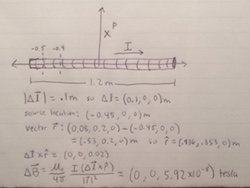 P
x
I
-0.5 -0.4
1.2 m
|Δl⃗| = .1m so Δl = (0.1, 0, 0) m
source location: (-0.45, 0, 0) m
vector r⃗: (0.08, 0.2, 0) - (-0.45, 0, 0)
= (.53, 0.2, 0) m so r̂ = (.936, .353, 0) m
Δl × r⃗ = (0, 0, 0.02)
ΔB⃗ = μ₀/4π I (Δl⃗ × r̂)/|r|² = (0, 0, 5.92×10⁻⁸) tesla